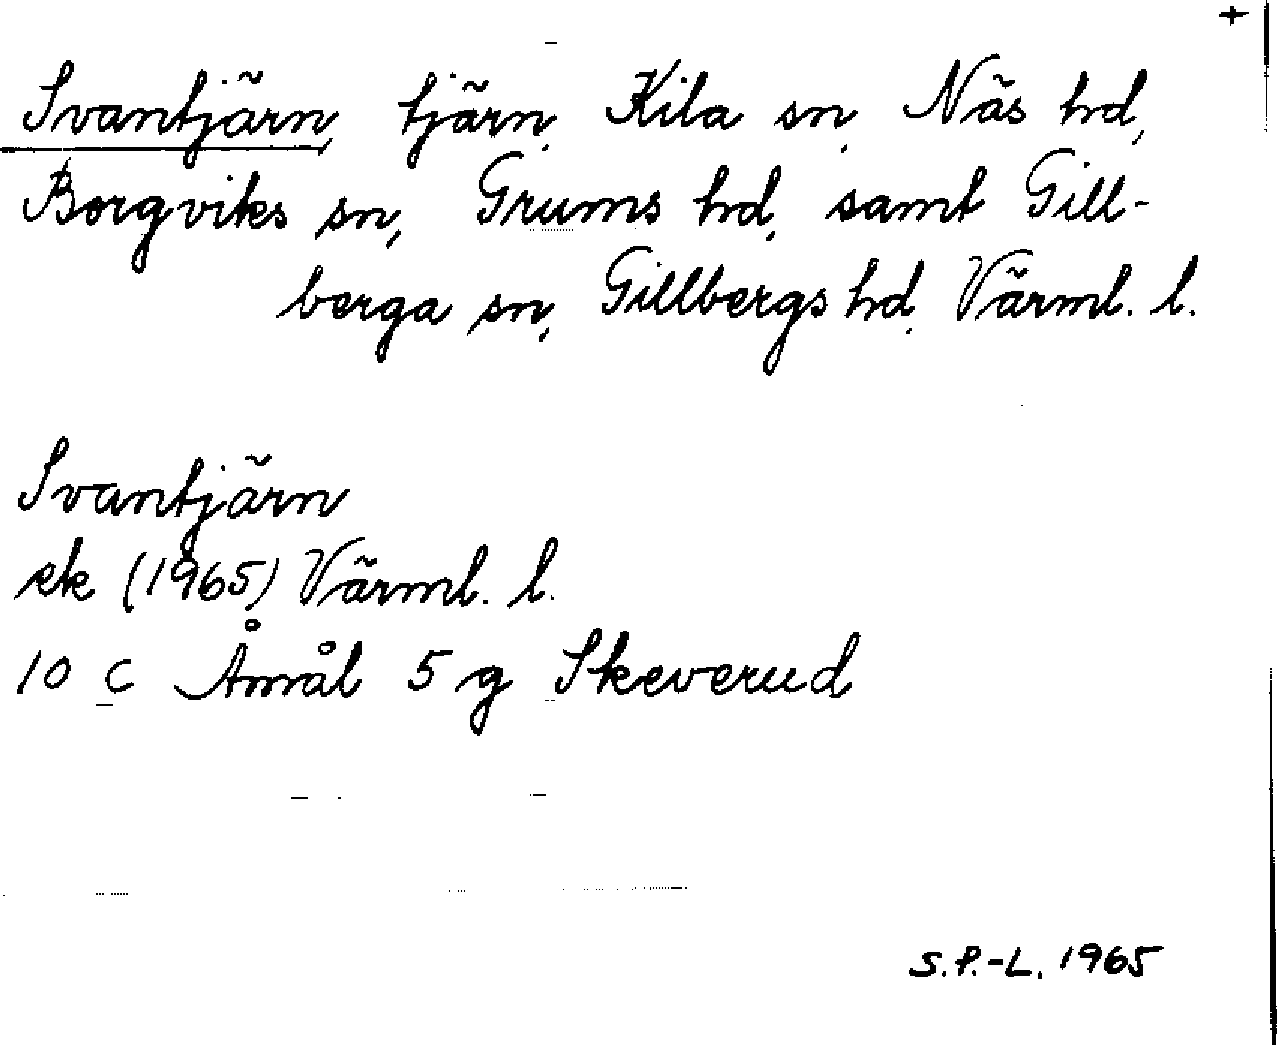 +
Svantjärn, tjärn, Kila sn, Näs hd,
Borgviks sn, Grums hd, samt Gill-
berga sn, Gillbergs hd, Värml. l.
Svantjärn
ek (1965) Värml. l.
10 C Åmål 5 g Skeverud
S.P.-L. 1965